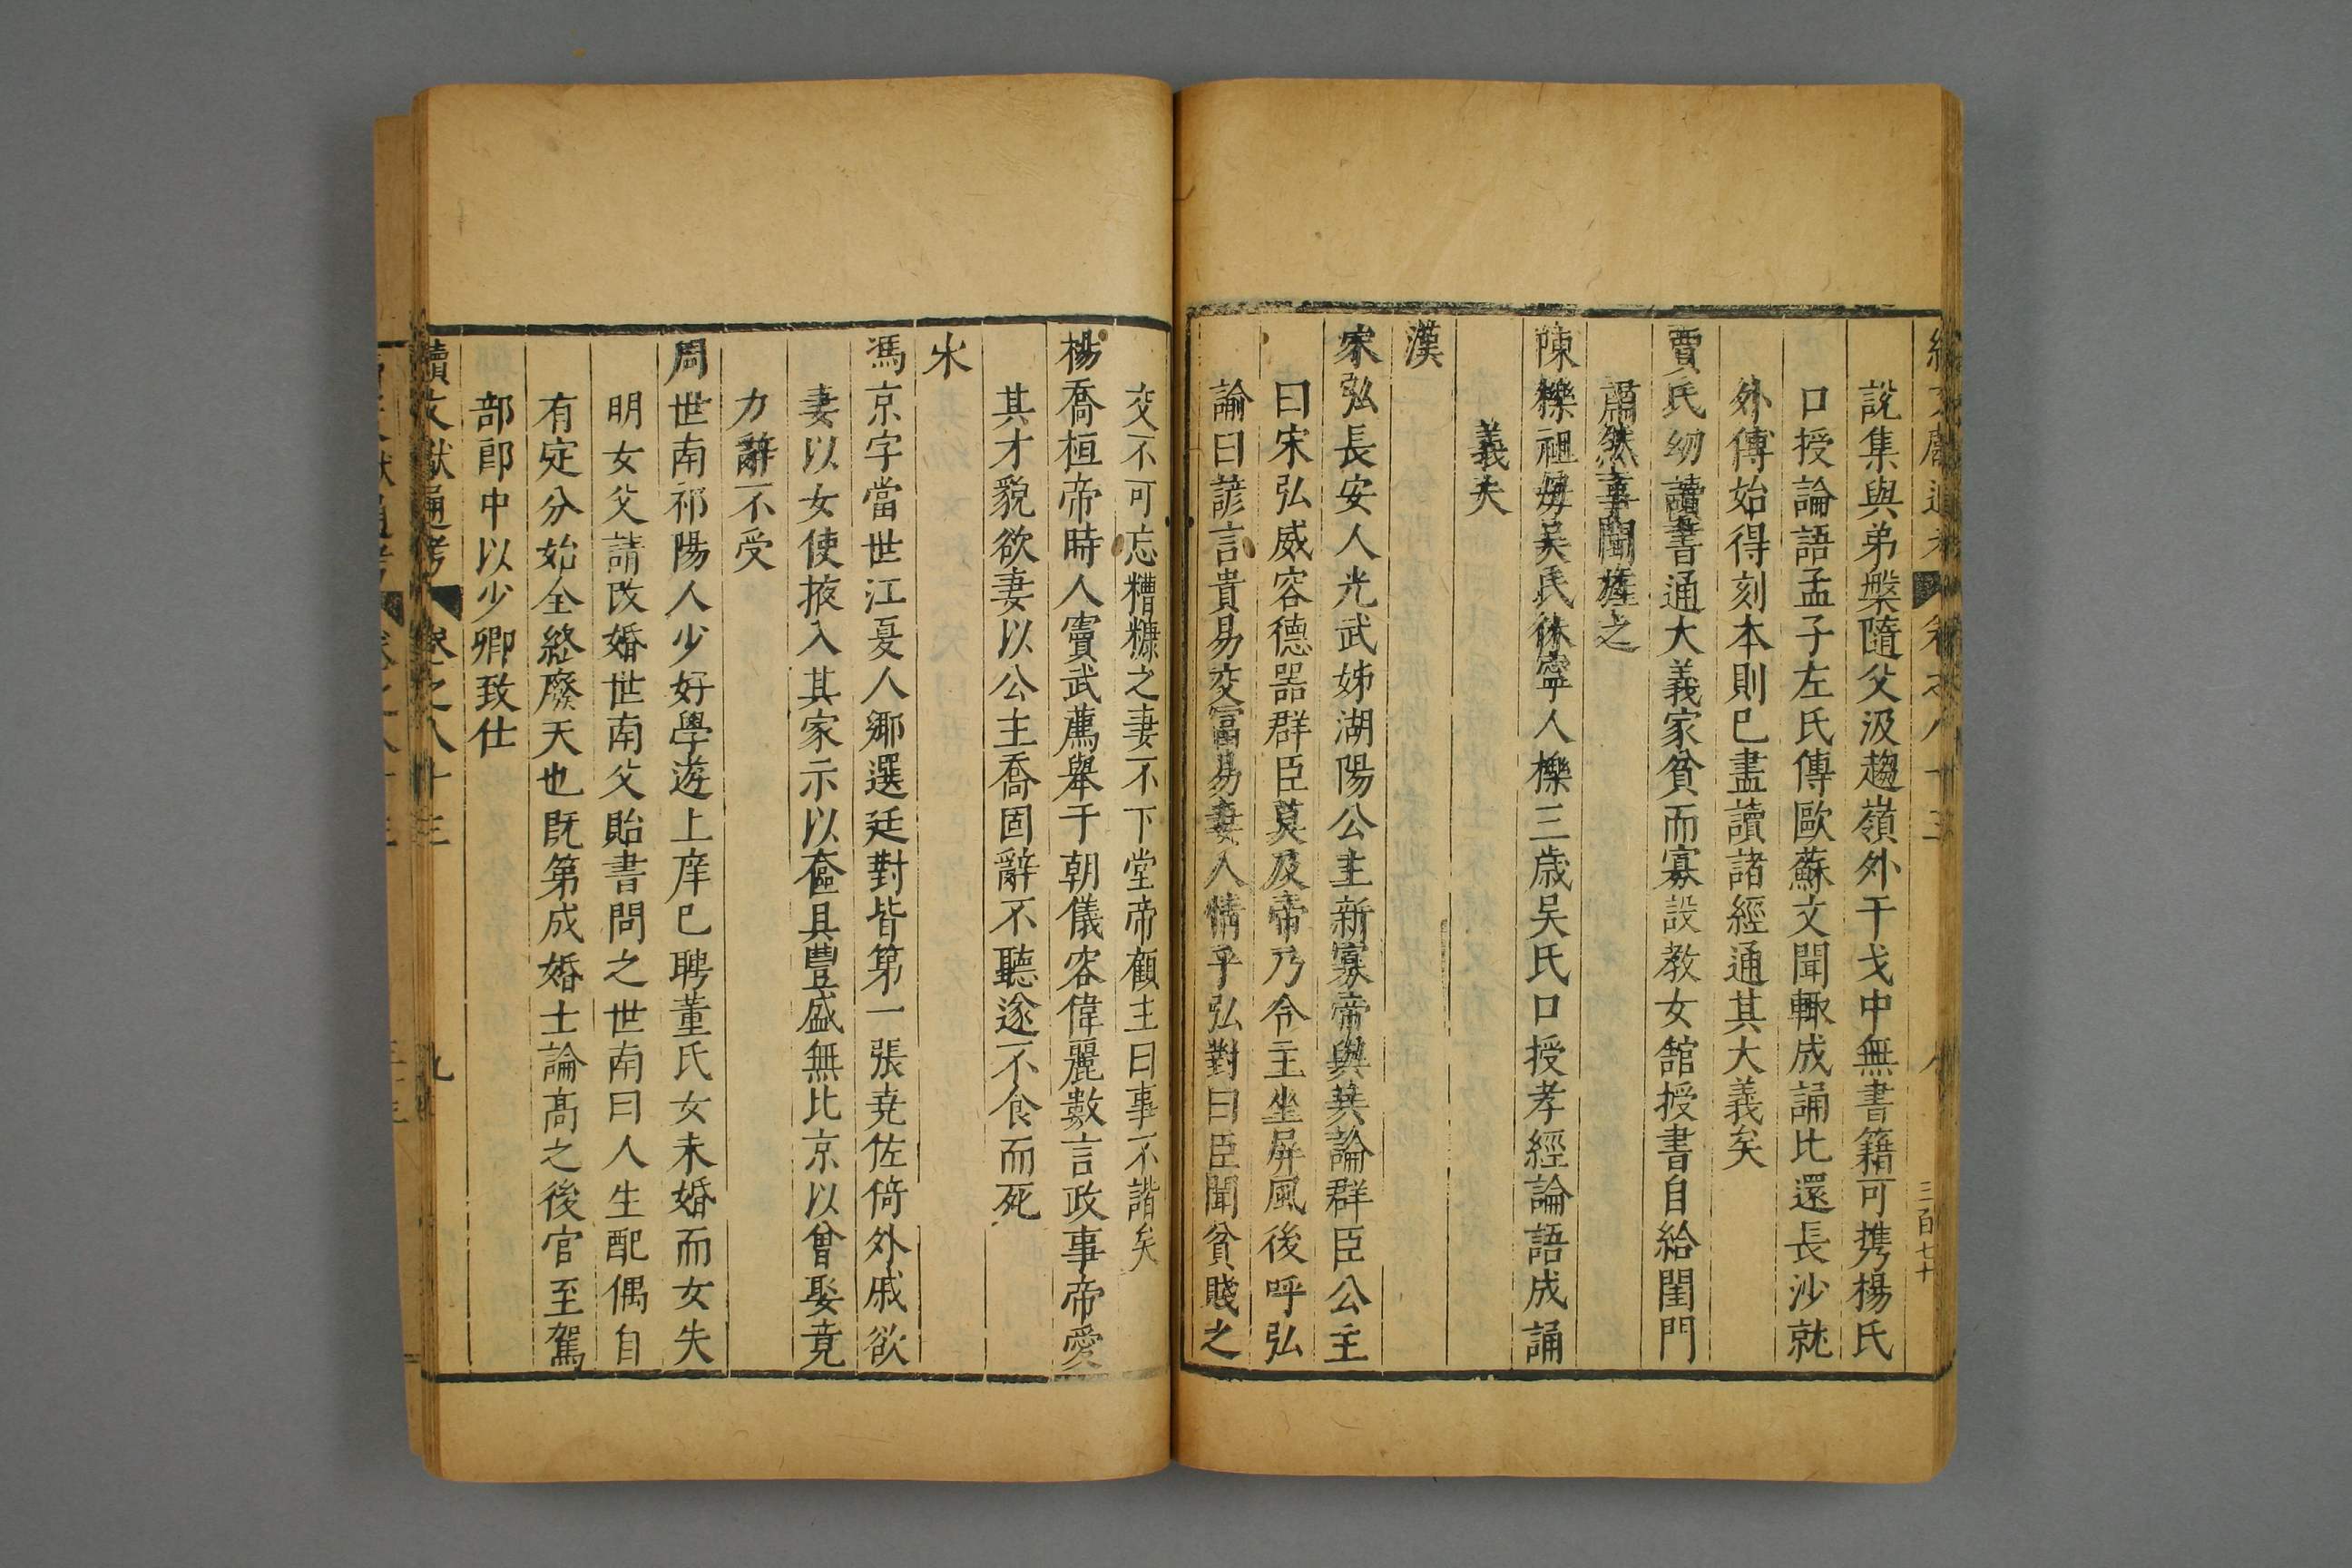 說集與弟槃隨父汲趨嶺外干戈中無書籍可携楊氏
口授論語孟子左氏傳歐蘇文聞輙成誦比還長沙就
外傅始得刻本則已盡讀諸經通其大義矣
賈氏幼讀書通大義家貧而寡設教女舘授書自給閨門
肅然事聞旌之
陳櫟祖母吴氏休寧人櫟三歲吴氏口授孝經論語成誦
義夫
漢
宋弘長安人光武姊湖陽公主新寡帝與其論群臣公主
曰宋弘威容德器群臣莫及帝乃令主坐屏風後呼弘
論曰諺言貴易交富易妻人情乎弘對曰臣聞貧賤之
交不可忘糟糠之妻不下堂帝顧主曰事不諧矣
楊喬桓帝時人竇武薦舉于朝儀容偉麗數言政事帝愛
其才貌欲妻以公主喬固辭不聽遂不食而死
宋
馮京字當世江夏人鄉選廷對皆第一張堯佐倚外戚欲
妻以女使掖入其家示以奩具豐盛無比京以曾娶竟
力辭不受
周世南祁陽人少好學遊上庠已聘董氏女未婚而女失
明女父請改婚世南父貽書問之世南曰人生配偶自
有定分始全終廢天也既第成婚士論高之後官至駕
部郎中以少卿致仕
續文獻通考 卷之八十三 九